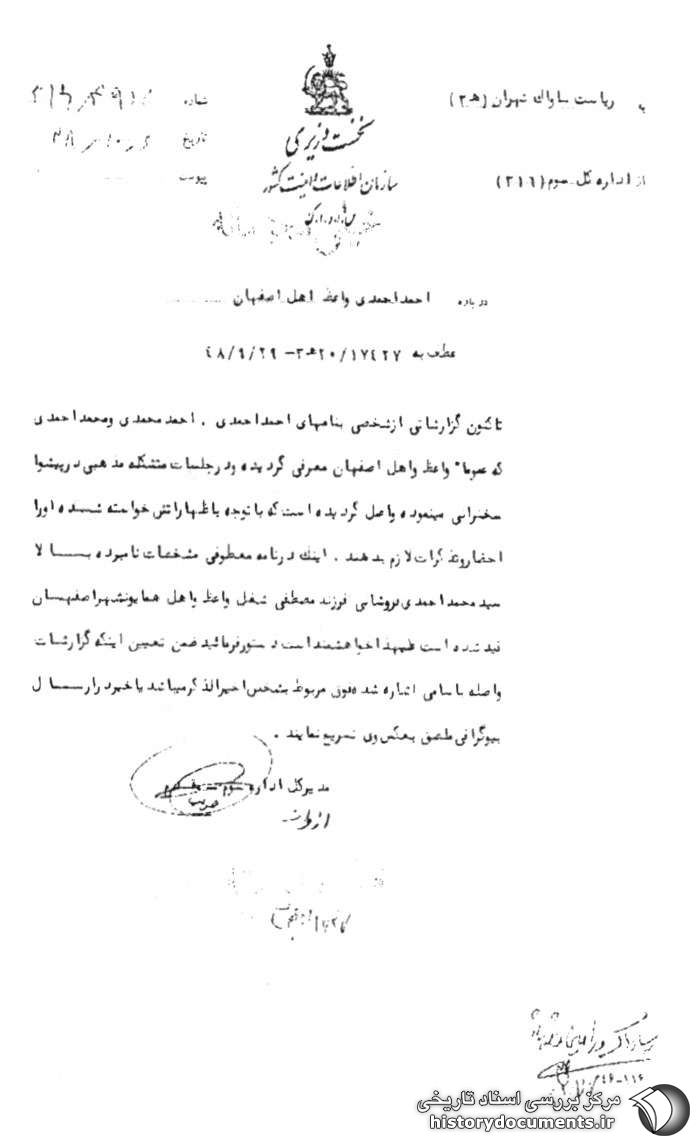 به ریاست ساواك تهران (هـ ۳)
از اداره کل سوم (۳۱٦)
نخست وزیری
سازمان اطلاعات و امنیت کشور
س.ا.و.ا.ك
شماره
تاریخ
پیوست
درباره احمد احمدی واعظ اهل اصفهان
عطف به ۲۰/۱۷٤۲۷هـ۳ - ٤۸/۹/۲۹
تاکنون گزارشاتی ازشخصی بنامهای احمد احمدی ، احمد محمدی ومحمد احمدی
که عموما" واعظ واهل اصفهان معرفی گردیده ودرجلسات متشکله مذهبی درپیشوا
سخنرانی مینموده واصل گردیده است که با توجه باظهاراتش خواسته شده اورا
احضاروتذکرات لازم بدهند . اینك درنامه معطوفی مشخصات نامبرده بالا
سید محمد احمدی فروشانی فرزند مصطفی شغل واعظ واهل همایونشهراصفهان
قید شده است علیهذا خواهشمند است دستورفرمائید ضمن تعیین اینکه گزارشات
واصله باسامی اشاره شده فوق مربوط بشخص اخیرالذکرمیباشد یاخیردرارسال
بیوگرافی ملصق بعکس وی تسریع نمایند .
مدیرکل اداره سوم
از طرف
مرکز بررسی اسناد تاریخی
historydocuments.ir